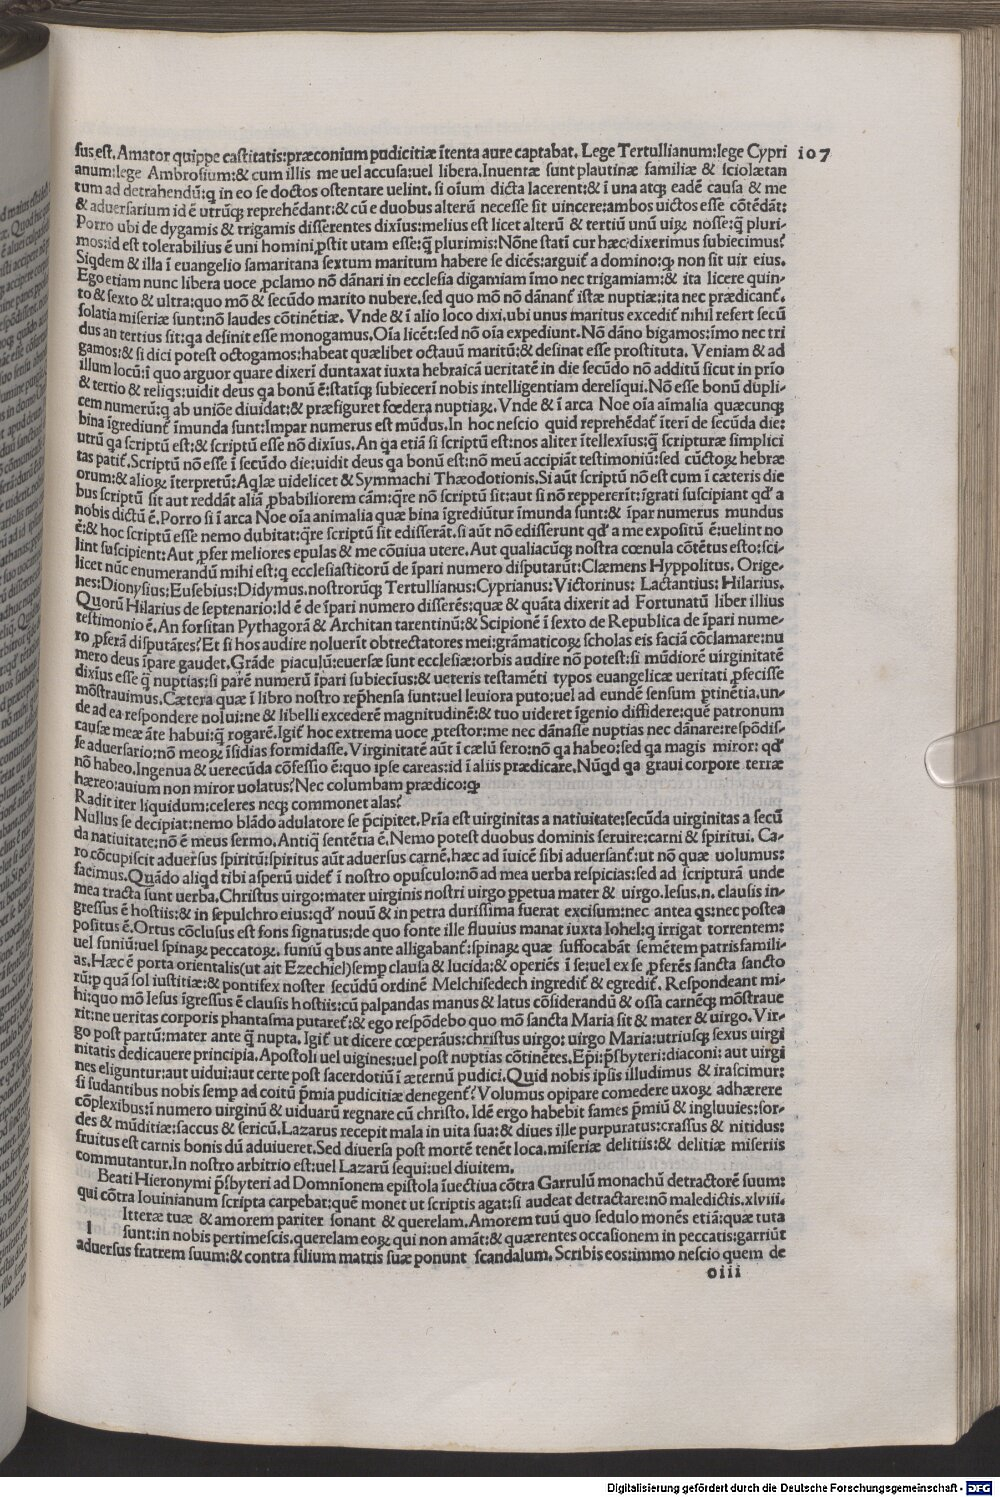 sus est. Amator quippe castitatis: præconium pudicitiæ ītenta aure captabat. Lege Tertullianum: lege Cypri 107
anum: lege Ambrosium: & cum illis me uel accusa: uel libera. Inuentæ sunt plautinæ familiæ & sciolætan
tum ad detrahendū: q in eo se doctos ostentare uelint. si oīum dicta lacerent: & ī una atqꝫ eadē causa & me
& aduersarium id ē utrūqꝫ reprehēdant: & cū e duobus alterū necesse sit uincere: ambos uictos esse cōtēdāt:
Porro ubi de dygamis & trigamis disserentes dixīus: melius est licet alterū & tertiū unū uiꝝ nosse: q̄ pluri-
mos: id est tolerabilius ē uni homini ꝓstit utam esse: q̄ plurimis: Nōne statī cur hæc dixerimus subiecimus?
Siqdem & illa ī euangelio samaritana sextum maritum habere se dicēs: arguit a domino: ꝙ non sit uir eius.
Ego etiam nunc libera uoce ꝓclamo nō dānari in ecclesia digamiam īmo nec trigamiam: & ita licere quin-
to & sexto & ultra: quo mō & secūdo marito nubere. sed quo mō nō dānant istæ nuptiæ: ita nec prædicant.
solatia miseriæ sunt: nō laudes cōtinētiæ. Vnde & ī alio loco dixi. ubi unus maritus excedit nihil refert secū
dus an tertius sit: qa definit esse monogamus. Oīa licēt: sed nō oīa expediunt. Nō dāno bigamos: īmo nec tri
gamos: & si dici potest octogamos: habeat quælibet octauū maritū: & desinat esse prostituta. Veniam & ad
illum locū: ī quo arguor quare dixerī duntaxat iuxta hebraicā ueritatē in die secūdo nō additū sicut in prīo
& tertio & reliqs: uidit deus qa bonū ē: statīqꝫ subiecerī nobis intelligentiam derelīqui. Nō esse bonū dupli-
cem numerū: q ab uniōe diuidat: & præfiguret fœdera nuptiaꝝ. Vnde & ī arca Noe oīa aīmalia quæcunqꝫ
bina īgrediunt īmunda sunt: Impar numerus est mūdus. In hoc nescio quid reprehēdat īteri de secūda die:
utrū qa scriptū est: & scriptū esse nō dixīus. An qa etiā si scriptū est: nos aliter ītellexīus: q̄ scripturæ simplici
tas patit. Scriptū nō esse ī secūdo die: uidit deus qa bonū est: nō meū accipiāt testimoniū: sed cūctoꝝ hebræ
orum: & alioꝝ īterpretū: Aqlæ uidelicet & Symmachi Thæodotionis. Si aūt scriptū nō est cum ī cæteris die
bus scriptū sit aut reddāt aliā ꝓbabiliorem cām: qre nō scriptū sit: aut si nō reppererīt: īgrati suscipiant qd' a
nobis dictū ē. Porro si ī arca Noe oīa animalia quæ bina īgrediūtur īmunda sunt: & īpar numerus mundus
ē: & hoc scriptū esse nemo dubitat: qre scriptū sit edisserāt. si aūt nō edisserunt qd' a me expositū ē: uelint no
lint suscipient: Aut ꝓfer meliores epulas & me cōuiua utere. Aut qualiacūqꝫ nostra cœnula cōtētus esto: sci-
licet nūc enumerandū mihi est: q ecclesiasticorū de īpari numero disputarūt: Clæmens Hyppolitus. Orige-
nes: Dionysius: Eusebius: Didymus. nostrorūqꝫ Tertullianus: Cyprianus: Victorinus: Lactantius: Hilarius.
Quorū Hilarius de septenario: Id ē de īpari numero disserēs: quæ & quāta dixerit ad Fortunatū liber illius
testimonio ē. An forsitan Pythagorā & Architan tarentinū: & Scipionē ī sexto de Republica de īpari nume-
ro ꝓferā disputātes? Et si hos audire noluerīt obtrectatores mei: grāmaticoꝝ scholas eis faciā cōclamare: nu
mero deus īpare gaudet. Grāde piaculū: euersæ sunt ecclesiæ: orbis audire nō potest: si mūdiorē uirginitatē
dixīus esse q̄ nuptias: si parē numerū īpari subiecīus: & ueteris testamēti typos euangelicæ ueritati ꝓfecisse
mōstrauimus. Cætera quæ ī libro nostro repħensa sunt: uel leuiora puto: uel ad eundē sensum ꝑtinētia. un-
de ad ea respondere nolui: ne & libelli excederē magnitudinē: & tuo uideret īgenio diffidere: quē patronum
causæ meæ āte habui: q̄ rogarē. Igit hoc extrema uoce ꝓtestor: me nec dānasse nuptias nec dānare: respōdis-
se aduersario: nō meoꝝ īsidias formidasse. Virginitatē aūt ī cælū fero: nō qa habeo: sed qa magis miror: qd'
nō habeo. Ingenua & uerecūda cōfessio ē: quo ipse careas: id ī aliis prædicare. Nūqd qa graui corpore terræ
hæreo: auium non miror uolatus? Nec columbam prædico: ꝙ
Radit iter liquidum: celeres neqꝫ commonet alas?
Nullus se decipiat: nemo blādo adulatore se p̄cipitet. Pr̄ia est uirginitas a natiuitate: secūda uirginitas a secū
da natiuitate: nō ē meus sermo. Antiq̄ sentētia ē. Nemo potest duobus dominis seruire: carni & spiritui. Ca-
ro cōcupiscit aduersus spiritū: spiritus aūt aduersus carnē. hæc ad īuicē sibi aduersant: ut nō quæ uolumus:
facimus. Quādo aliqd tibi asperū uidet ī nostro opusculo: nō ad mea uerba respicias: sed ad scripturā unde
mea tracta sunt uerba. Christus uirgo: mater uirginis nostri uirgo ꝑpetua mater & uirgo. Iesus. n. clausis in-
gressus ē hostiis: & in sepulchro eius: qd' nouū & in petra durissima fuerat excisum: nec antea qs: nec postea
positus ē. Ortus cōclusus est fons signatus: de quo fonte ille fluuius manat iuxta Iohel: q irrigat torrentem:
uel funiū: uel spinaꝝ peccatoꝝ. funiū qbus ante alligabant: spinaꝝ quæ suffocabāt semētem patris famili-
as. Hæc ē porta orientalis (ut ait Ezechiel) semp clausa & lucida: & operiēs ī se: uel ex se ꝓferēs sancta sancto
rū: p quā sol iustitiæ: & pontifex noster secūdū ordinē Melchisedech ingredit & egredit. Respondeant mi-
hi: quo mō Iesus īgressus ē clausis hostiis: cū palpandas manus & latus cōsiderandū & ossa carnēqꝫ mōstraue
rit: ne ueritas corporis phantasma putaret: & ego respōdebo quo mō sancta Maria sit & mater & uirgo. Vir-
go post partū: mater ante q̄ nupta. Igit ut dicere cœperāus: christus uirgo: uirgo Maria: utriusqꝫ sexus uirgi
nitatis dedicauere principia. Apostoli uel uigines: uel post nuptias cōtinētes. Ep̄i: p̄sbyteri: diaconi: aut uirgi
nes eliguntur: aut uidui: aut certe post sacerdotiū ī æternū pudici. Quid nobis ipsis illudimus & irascimur:
si sudantibus nobis semp ad coitū p̄mia pudicitiæ denegent? Volumus opipare comedere uxoꝝ adhærere
cōplexibus: ī numero uirginū & uiduarū regnare cū christo. Idē ergo habebit fames p̄miū & ingluuies: sor-
des & mūditiæ: saccus & sericū. Lazarus recepit mala in uita sua: & diues ille purpuratus: crassus & nitidus:
fruitus est carnis bonis dū aduiueret. Sed diuersa post mortē tenēt loca. miseriæ delitiis: & delitiæ miseriis
commutantur. In nostro arbitrio est: uel Lazarū sequi: uel diuitem.
Beati Hieronymi p̄sbyteri ad Domnīonem epistola īuectiua cōtra Garrulū monachū detractorē suum:
qui cōtra Iouinianum scripta carpebat: quē monet ut scriptis agat: si audeat detractare: nō maledictis. xlviii.
l Itteræ tuæ & amorem pariter sonant & querelam. Amorem tuū quo sedulo monēs etiā: quæ tuta
sunt: in nobis pertimescis. querelam eoꝝ qui non amāt: & quærentes occasionem in peccatis: garriūt
aduersus fratrem suum: & contra filium matris suæ ponunt scandalum. Scribis eos: immo nescio quem de
oiii
Digitalisierung gefördert durch die Deutsche Forschungsgemeinschaft - DFG